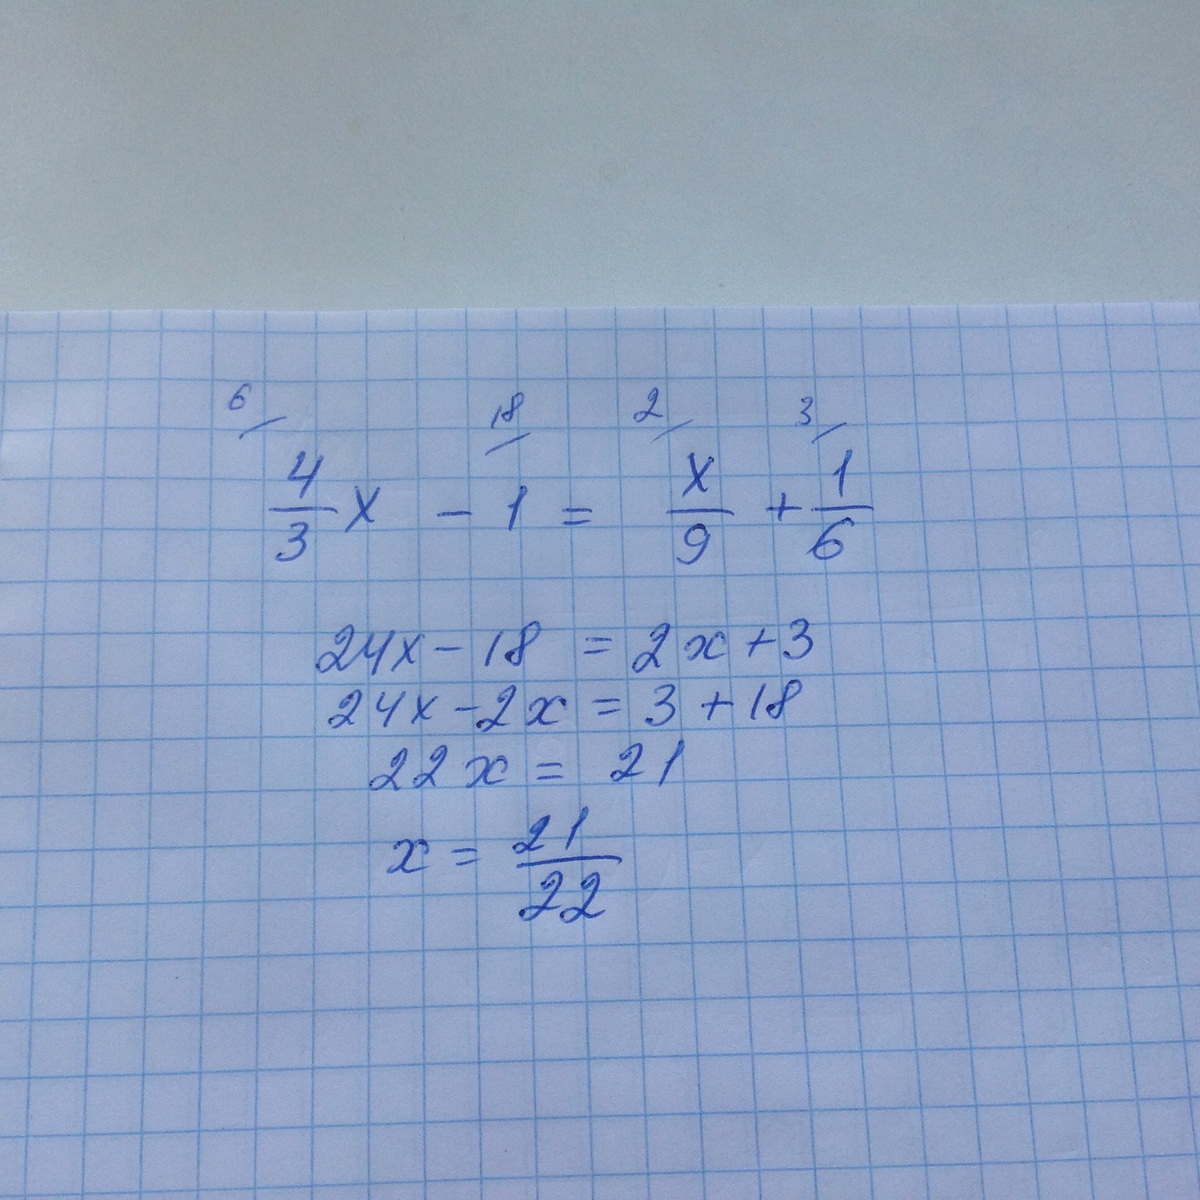 6/ 18/ 2/ 3/
4/3 x - 1 = x/9 + 1/6
24x - 18 = 2x + 3
24x - 2x = 3 + 18
22x = 21
x = 21/22